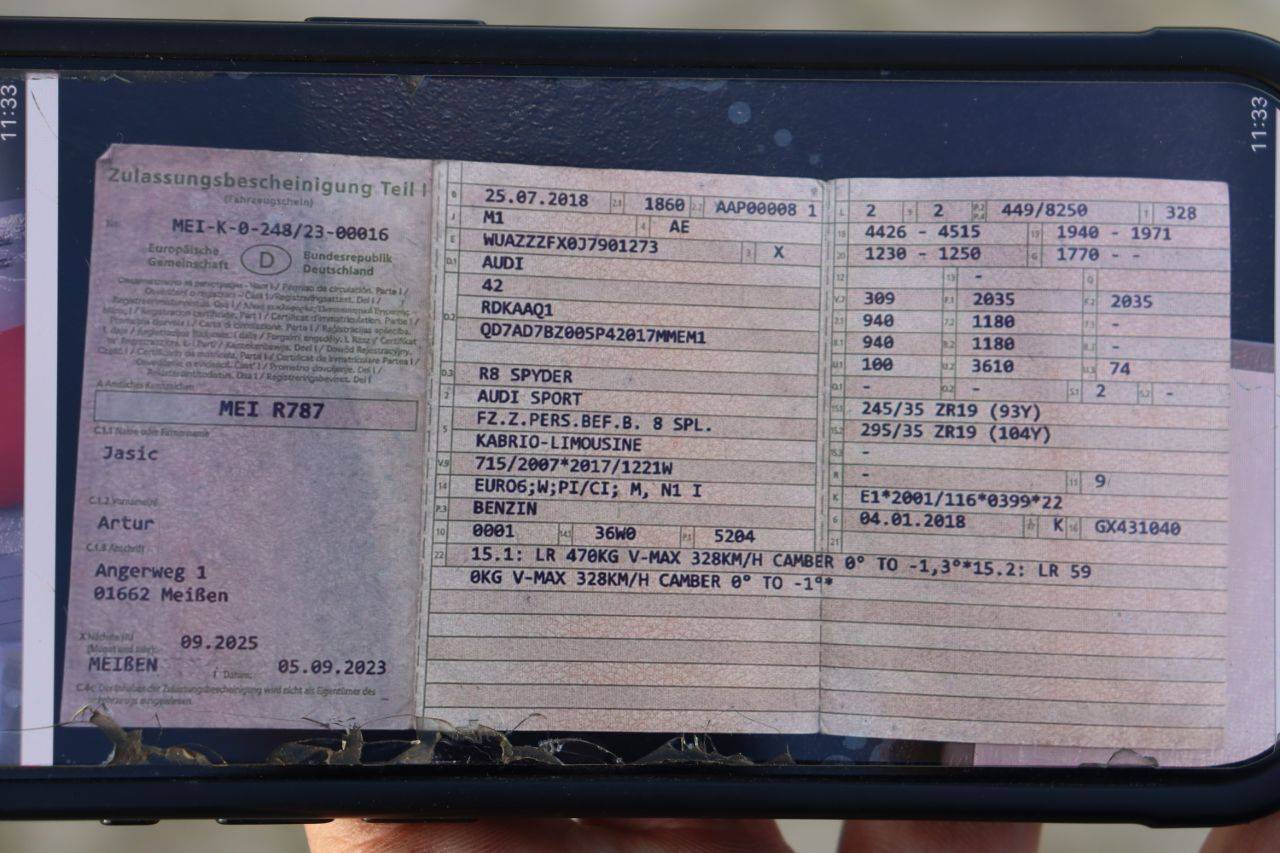 11:33
11:33
Zulassungsbescheinigung Teil I
(Fahrzeugschein)
Nr. MEI-K-0-248/23-00016
Europäische Gemeinschaft
D
Bundesrepublik Deutschland
A Amtliches Kennzeichen
MEI R787
C.1.1 Name oder Firmenname
Jasic
C.1.2 Vorname(n)
Artur
C.1.3 Anschrift
Angerweg 1
01662 Meißen
X Nächste HU
(Monat und Jahr): 09.2025
MEIßEN I Datum: 05.09.2023
C.4c Der Inhaber der Zulassungsbescheinigung wird nicht als Eigentümer des
Fahrzeugs ausgewiesen.
B 25.07.2018 2.1 1860 2.2 AAP00008 1
J M1 4 AE
E WUAZZZFX0J7901273 3 X
D.1 AUDI
42
D.2 RDKAAQ1
QD7AD7BZ005P42017MMEM1
D.3 R8 SPYDER
2 AUDI SPORT
5 FZ.Z.PERS.BEF.B. 8 SPL.
KABRIO-LIMOUSINE
V.9 715/2007*2017/1221W
14 EURO6;W;PI/CI; M, N1 I
P.3 BENZIN
10 0001 14.1 36W0 P.1 5204
22 15.1: LR 470KG V-MAX 328KM/H CAMBER 0° TO -1,3°*15.2: LR 59
0KG V-MAX 328KM/H CAMBER 0° TO -1°*
L 2 9 2 P.2 P.4 449/8250 T 328
18 4426 - 4515 19 1940 - 1971
20 1230 - 1250 G 1770 - -
12 - 13 - Q
V.7 309 F.1 2035 F.2 2035
7.1 940 7.2 1180 7.3 -
8.1 940 8.2 1180 8.3 -
U.1 100 U.2 3610 U.3 74
O.1 - O.2 - S.1 2 S.2 -
15.1 245/35 ZR19 (93Y)
15.2 295/35 ZR19 (104Y)
15.3 -
R - 11 9
K E1*2001/116*0399*22
6 04.01.2018 17 K 16 GX431040
21